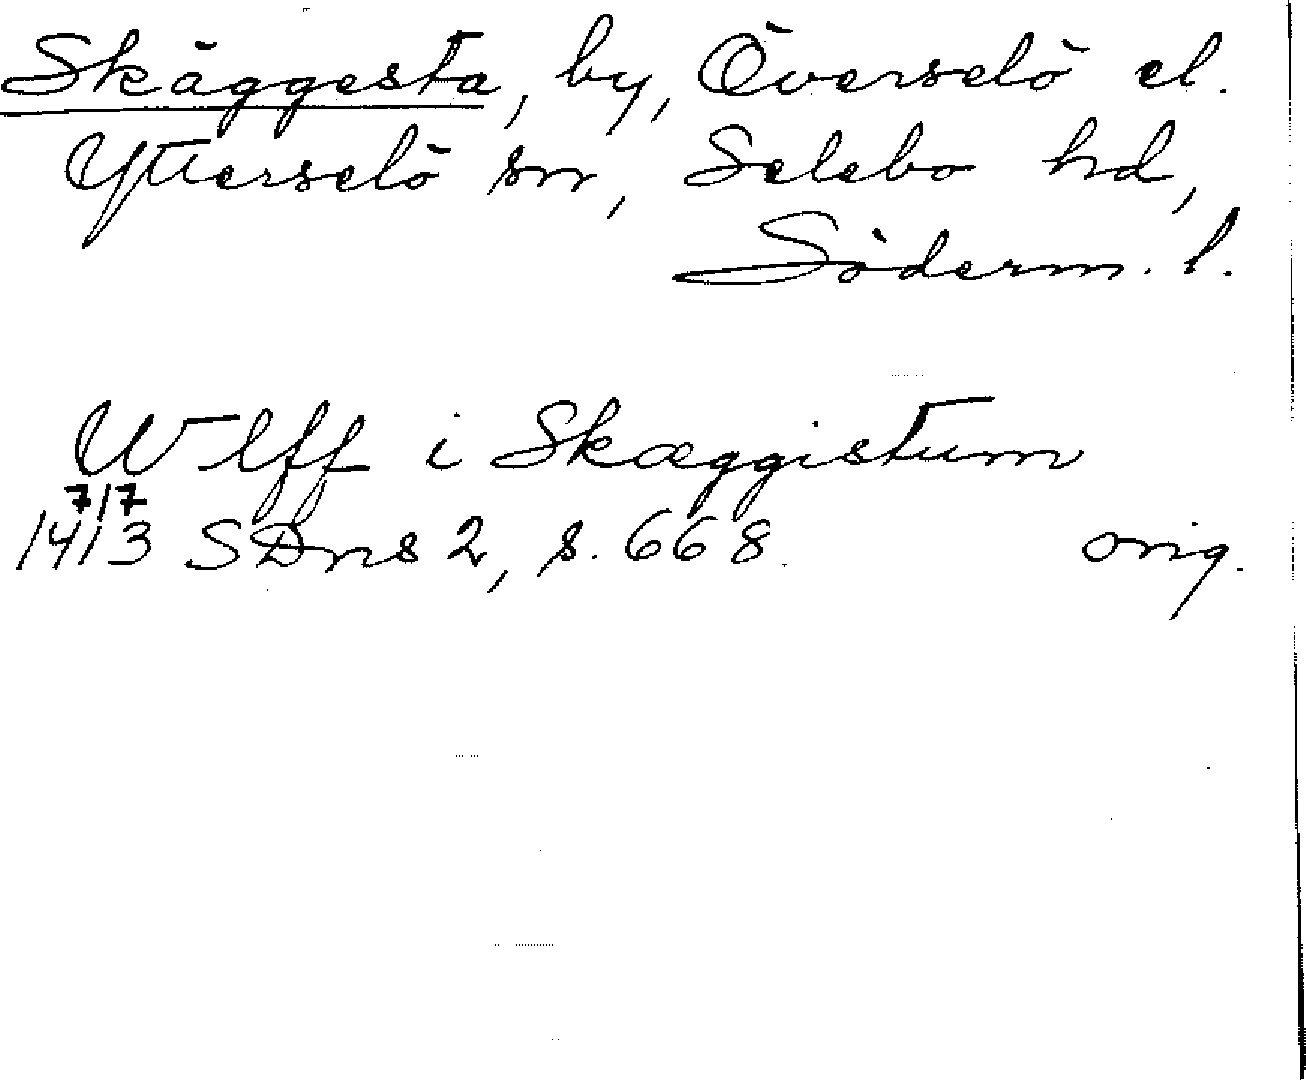 Skäggesta, by, Överselö el.
Ytterselö sn, Selebo hd,
Söderm. l.
Wlff i Skæggistum
7/7
1413 SDns 2, s. 668 orig.